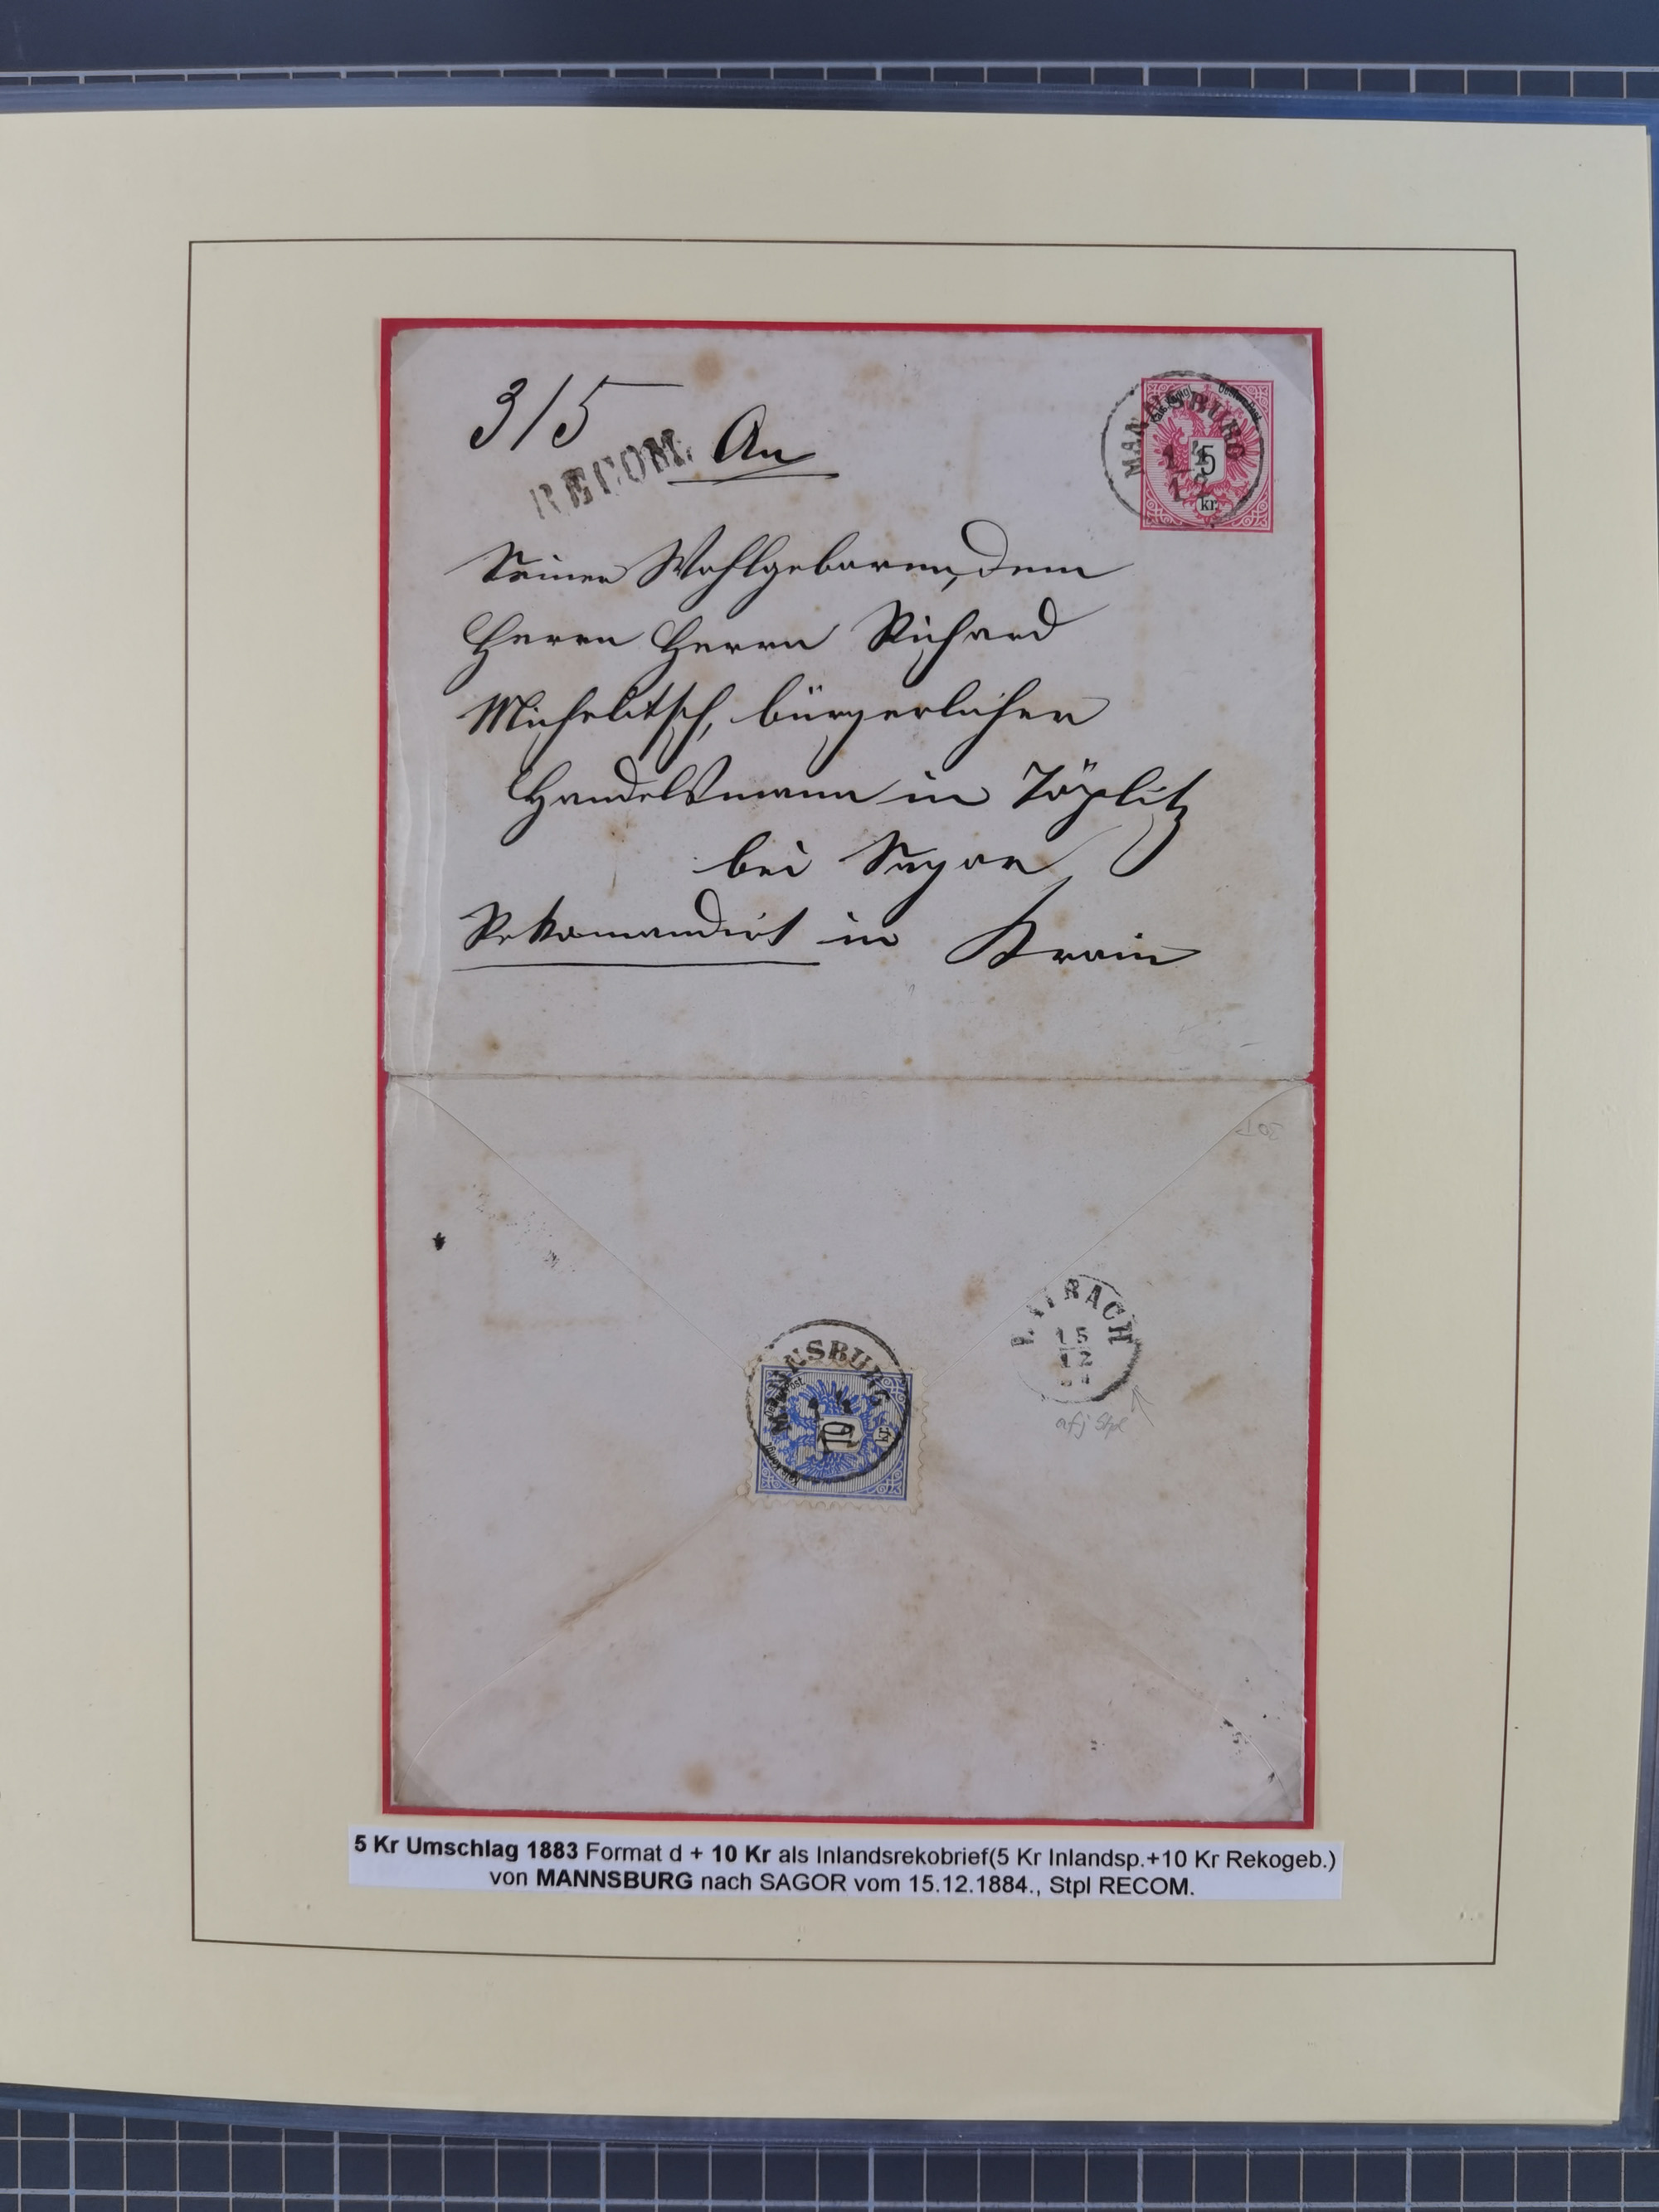 3/5
RECOM.
An
MANNSBURG
5
kr.
Seiner Wohlgeboren, dem
Herrn Herrn Richard
Michelitsch, bürgerlicher
Handelsmann in Töplitz
bei Sagor
Rekomandirt in Krain
LAIBACH
15
12
MANNSBURG
10
kr.
afj Stpl
5 Kr Umschlag 1883 Format d + 10 Kr als Inlandsrekobrief(5 Kr Inlandsp.+10 Kr Rekogeb.)
von MANNSBURG nach SAGOR vom 15.12.1884., Stpl RECOM.